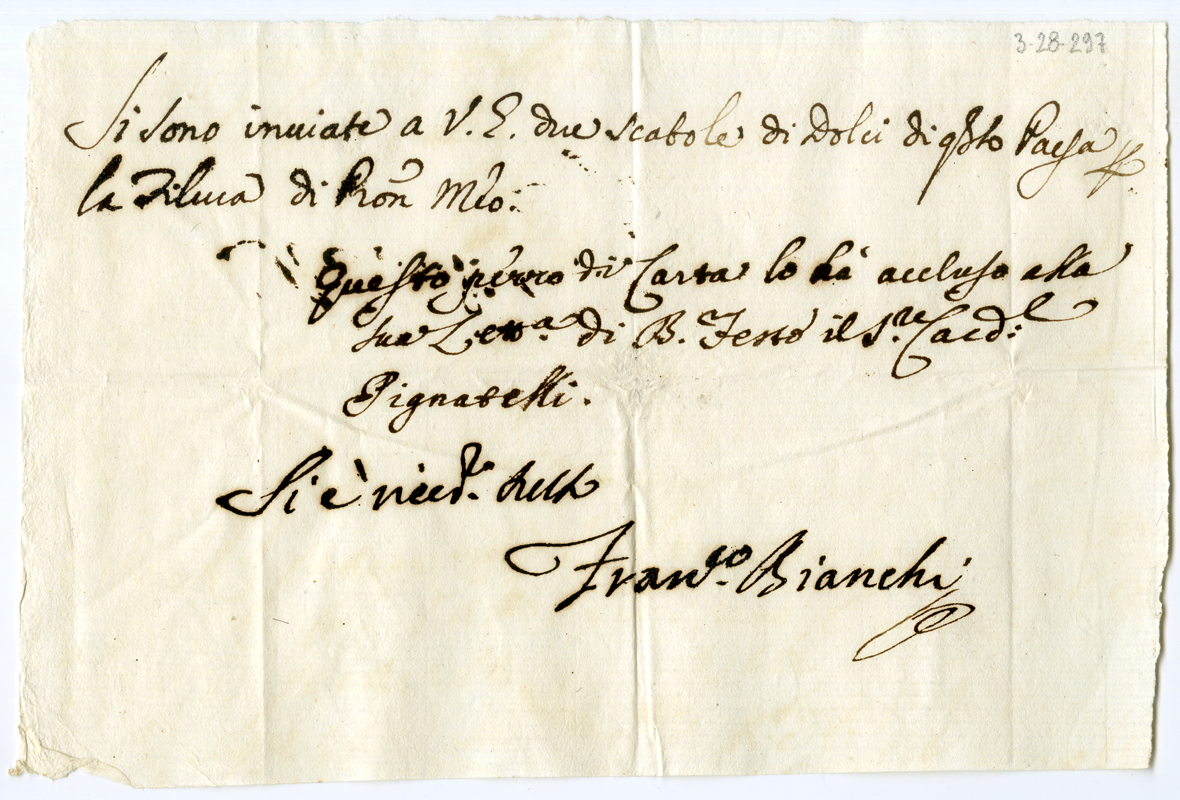 3-28-297
Si sono inuiate a V. E. due scatole di Dolci di q̃sto Paese p
la Filuca di Pron Meo:
Questo pezzo di Carta lo hà accluso alla
sua Lettª. di B. Festé il S.re Card:l
Pignatelli.
Si è riced.
Fran.co Bianchi